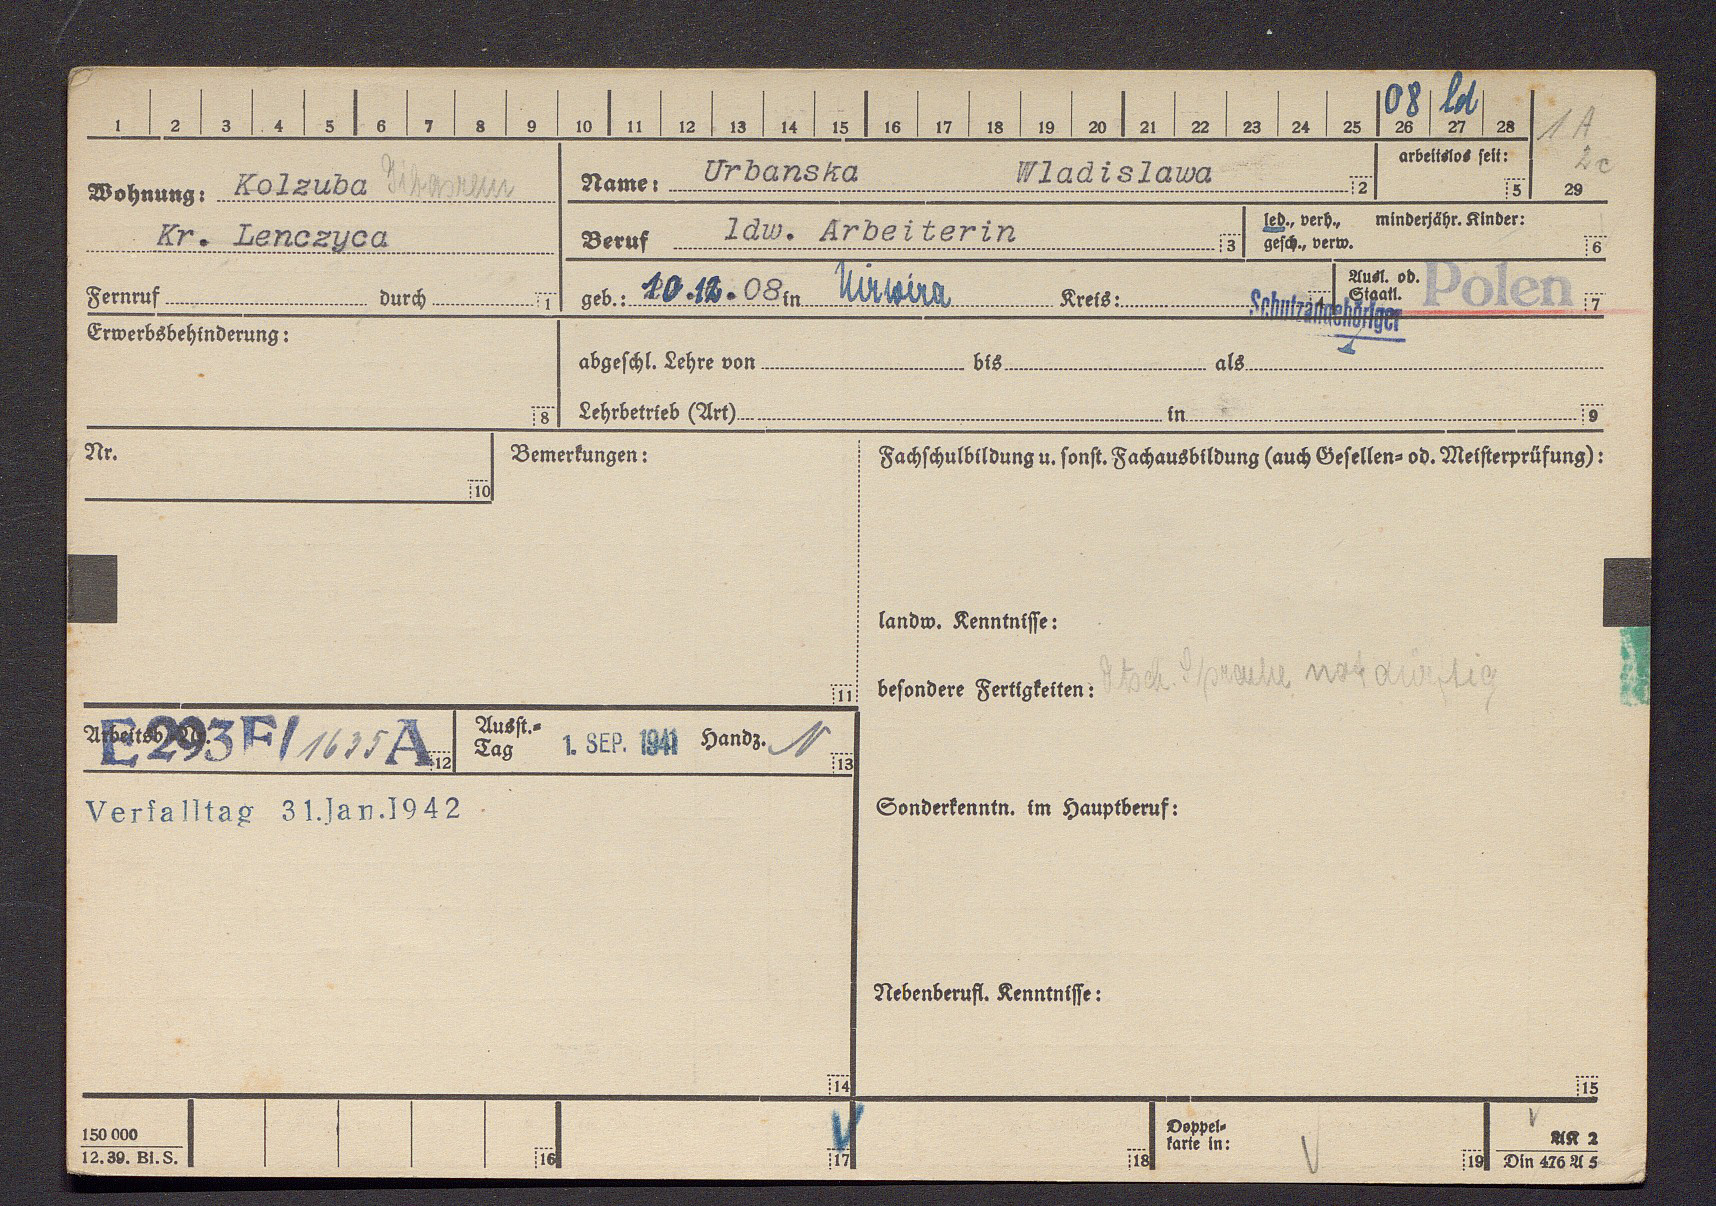 08 ld
1 2 3 4 5 6 7 8 9 10 11 12 13 14 15 16 17 18 19 20 21 22 23 24 25 26 27 28
1 A
2c
29
Wohnung: Kolzuba
Kr. Lenczyca
Fernruf durch 1
Name: Urbanska Wladislawa 2
arbeitslos seit: 5
Beruf ldw. Arbeiterin 3
led., verh., minderjähr. Kinder:
gesch., verw. 6
geb.: 10.12.08 in Kreis: 4
Ausl. od.
Staatl. Polen 7
Schutzangehöriger
Erwerbsbehinderung: 8
abgeschl. Lehre von bis als
Lehrbetrieb (Art) in 9
Nr. 10
Bemerkungen: 11
Fachschulbildung u. sonst. Fachausbildung (auch Gesellen- od. Meisterprüfung):
landw. Kenntnisse:
besondere Fertigkeiten: dtsch. Sprache notdürftig
Arbeitsb. Nr. E 293 F/ 1635 A 12
Ausst.-
Tag 1. SEP. 1941 Handz. 13
Verfalltag 31.Jan.1942
14
Sonderkenntn. im Hauptberuf:
Nebenberufl. Kenntnisse:
15
150 000
12. 39. Bl. S.
16 17 18
Doppel-
karte in: 19
AK 2
Din 476 A 5